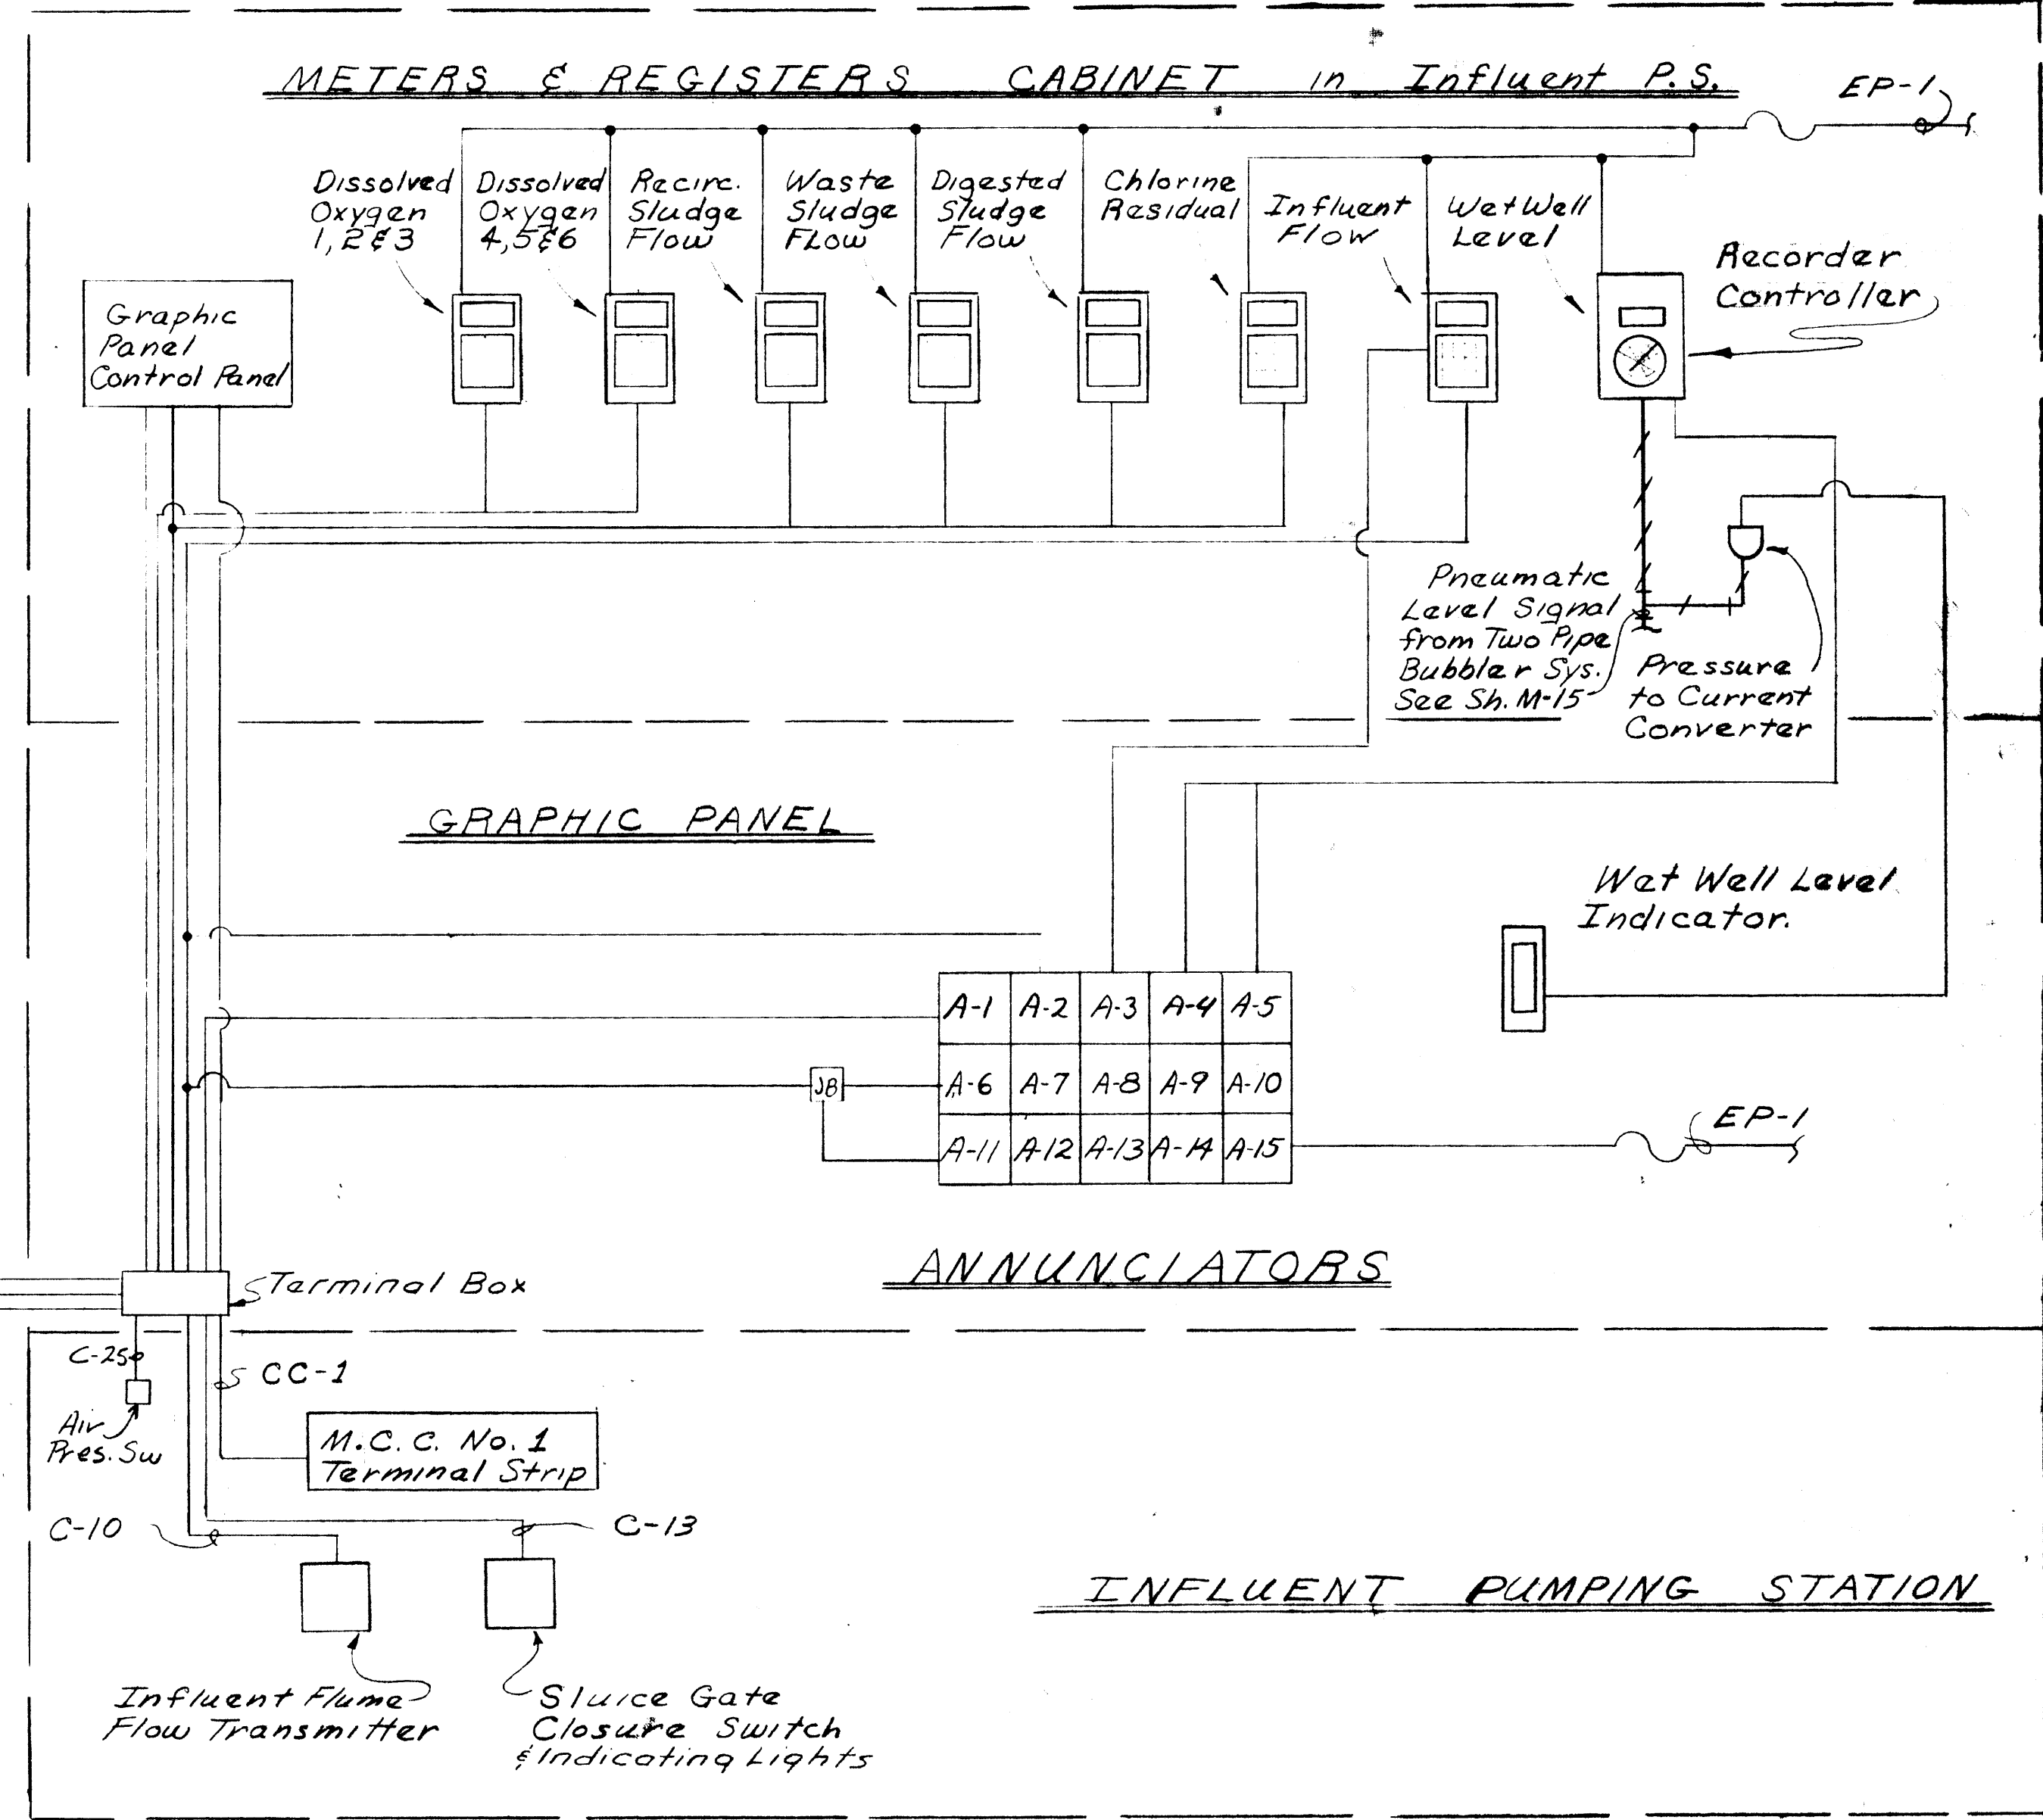 METERS & REGISTERS CABINET in Influent P.S.
EP-1
Dissolved
Oxygen
1,2&3
Dissolved
Oxygen
4,5&6
Recirc.
Sludge
Flow
Waste
Sludge
FLow
Digested
Sludge
Flow
Chlorine
Residual
Influent
Flow
Wet Well
Level
Recorder
Controller
Graphic
Panel
Control Panel
Pneumatic
Level Signal
from Two Pipe
Bubbler Sys.
See Sh. M-15
Pressure
to Current
Converter
GRAPHIC PANEL
Wet Well Level
Indicator.
A-1 A-2 A-3 A-4 A-5
JB
A-6 A-7 A-8 A-9 A-10
A-11 A-12 A-13 A-14 A-15
EP-1
ANNUNCIATORS
Terminal Box
C-25
CC-1
Air
Pres. Sw
M.C.C. No. 1
Terminal Strip
C-10
C-13
INFLUENT PUMPING STATION
Influent Flume
Flow Transmitter
Sluice Gate
Closure Switch
& Indicating Lights